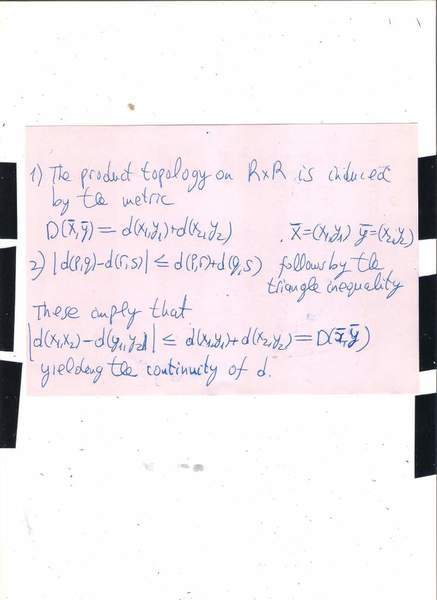 1) The product topology on R×R is induced
by the metric
D(x̄,ȳ) = d(x₁,y₁)+d(x₂,y₂) . x̄=(x₁,y₁) ȳ=(x₂,y₂)
2) |d(p,q)-d(r,s)| ≤ d(p,r)+d(q,s) follows by the
triangle inequality
These imply that
|d(x₁,x₂)-d(y₁,y₂)| ≤ d(x₁,y₁)+d(x₂,y₂)=D(x̄,ȳ)
yielding the continuity of d.